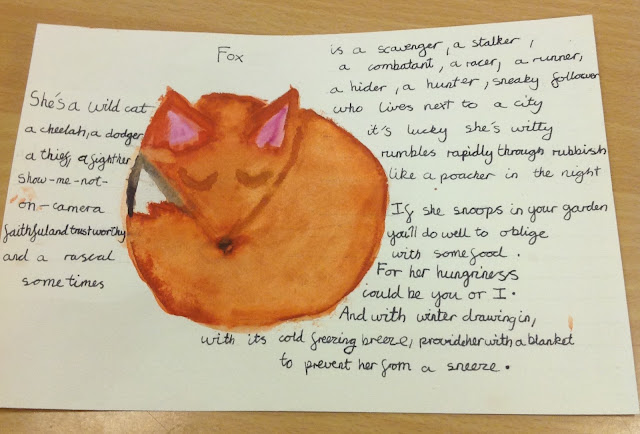 Fox
She's a wild cat
a cheetah, a dodger
a thief, a fighther
show-me-not-
on-camera
faithful and trustworthy
and a rascal
some times
is a scavenger, a stalker,
a combatant, a racer, a runner,
a hider, a hunter, sneaky follower
who lives next to a city
it's lucky she's witty
rumbles rapidly through rubbish
like a poacher in the night
If she snoops in your garden
you'll do well to oblige
with some food.
For her hungriness
could be you or I.
And with winter drawing in,
with its cold freezing breeze, provide her with a blanket
to prevent her from a sneeze.